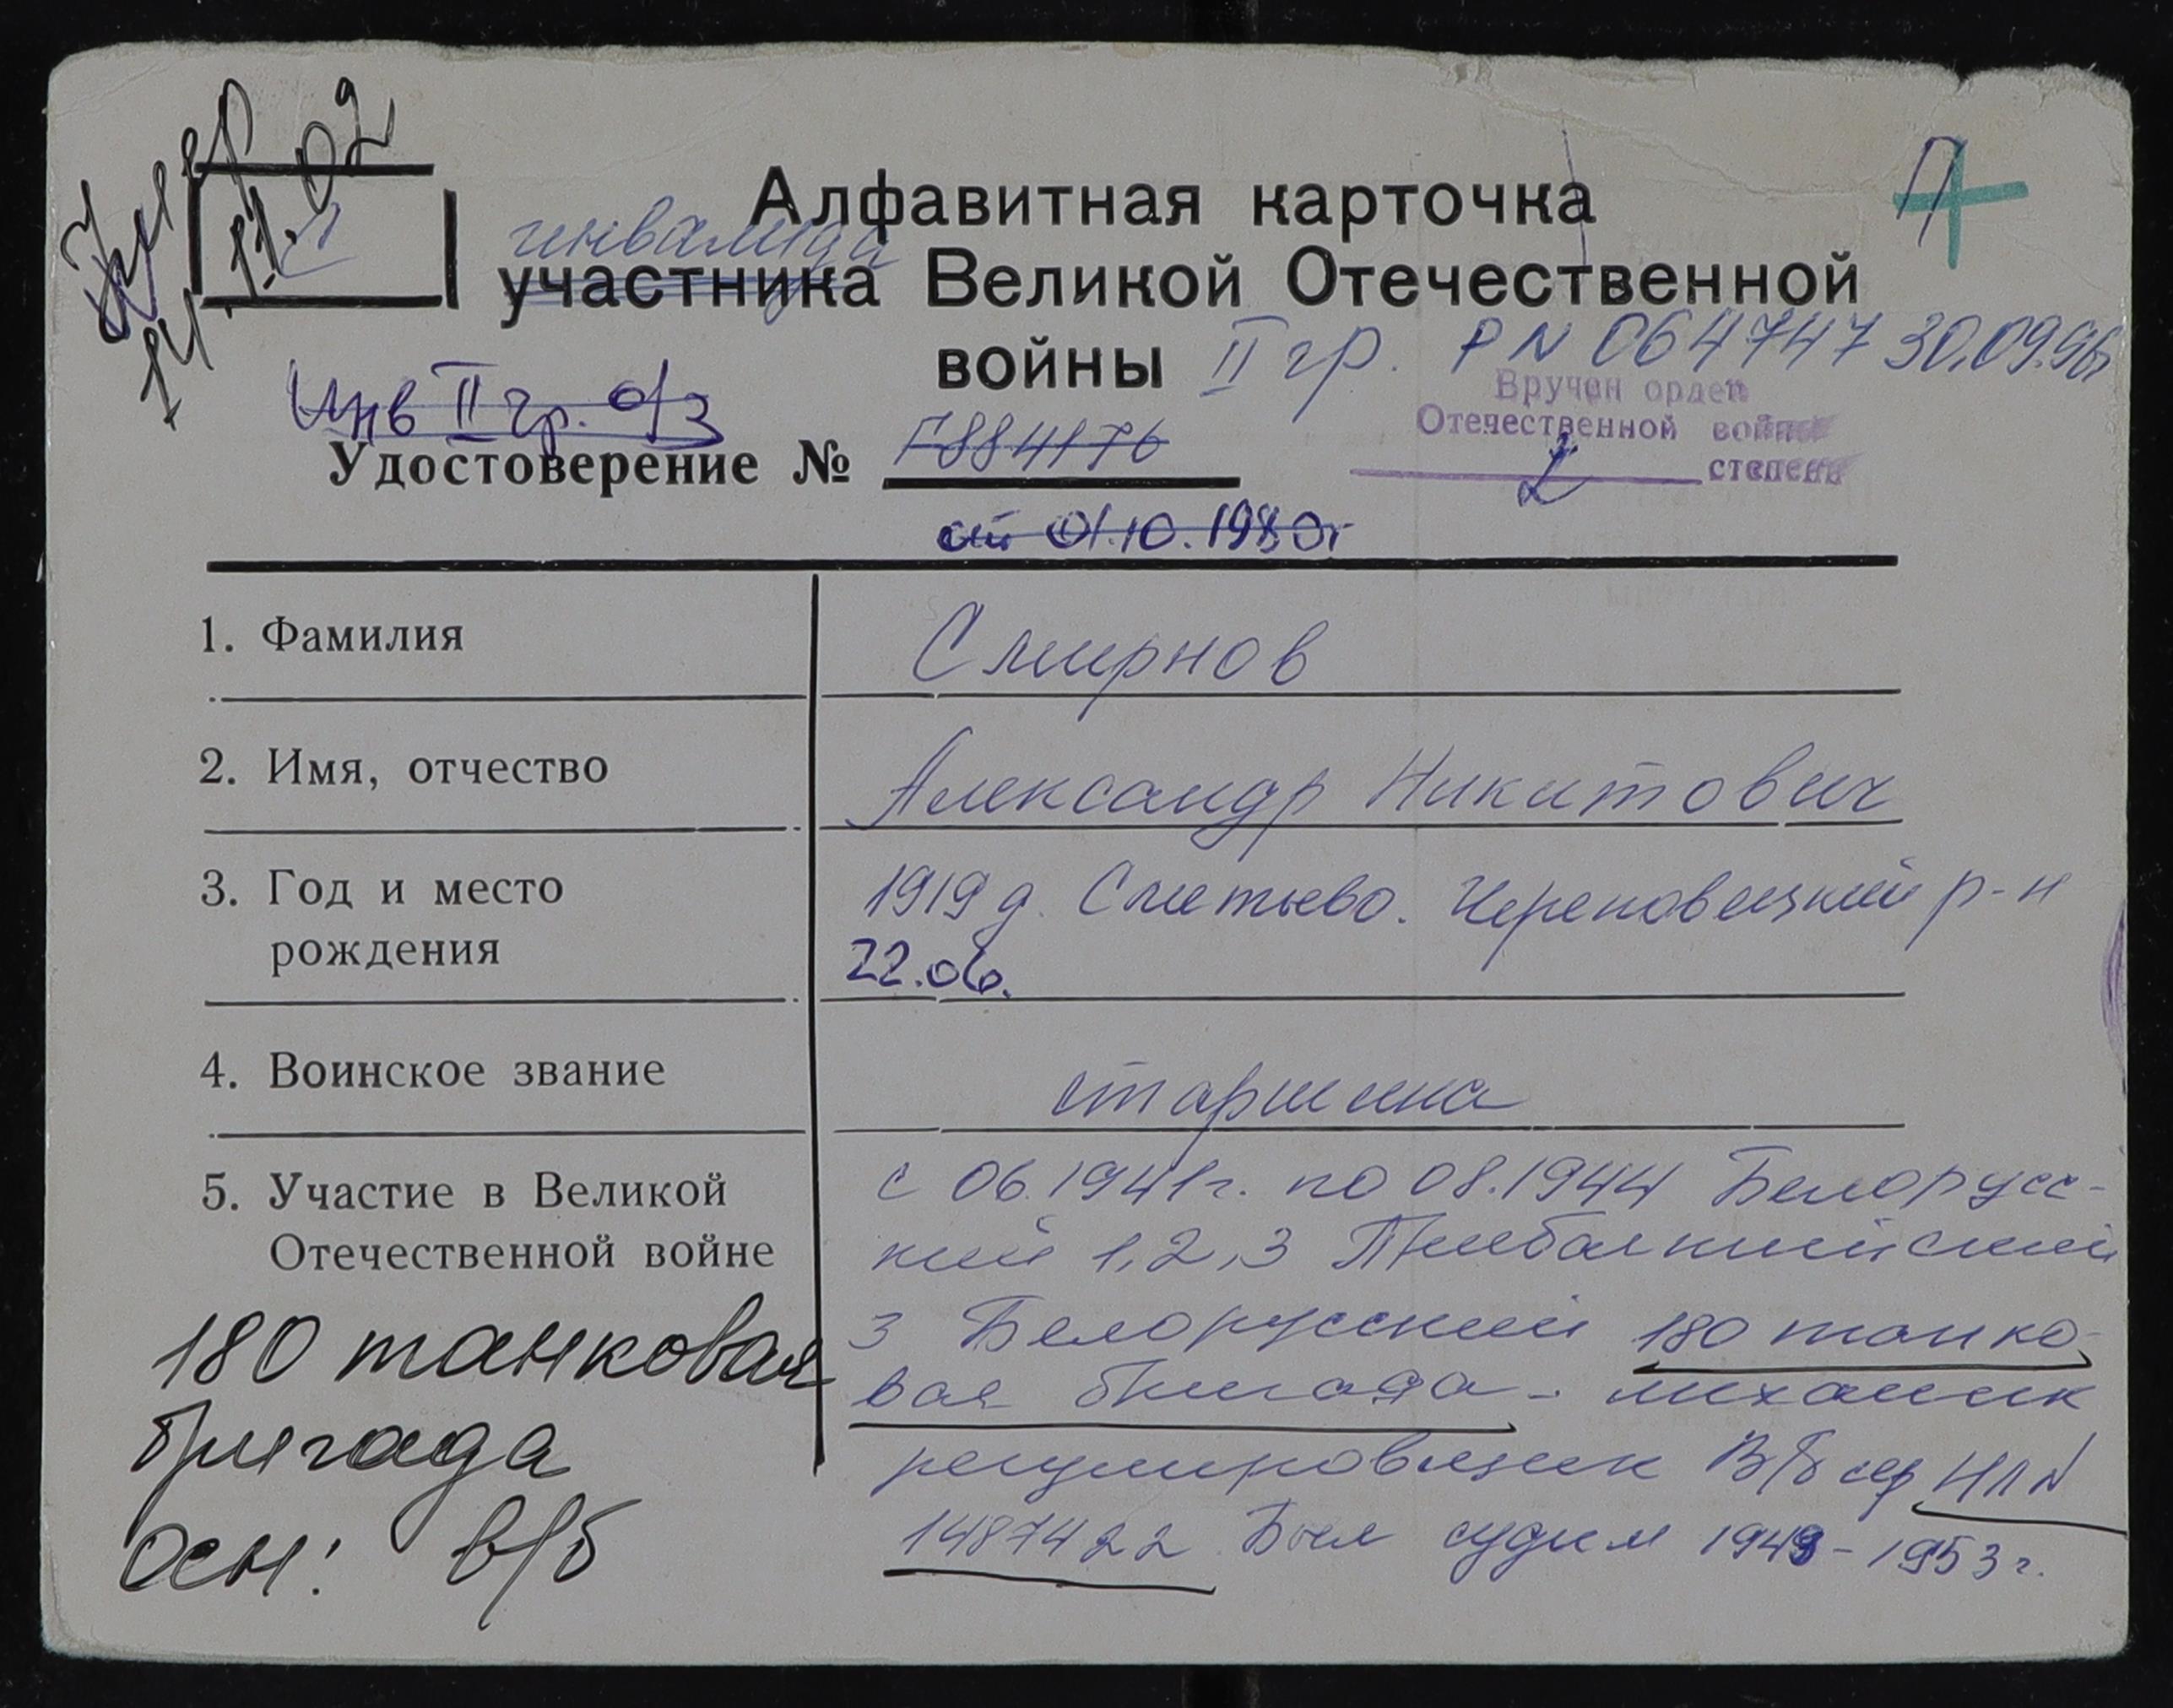 Умер
14.11.02
П
Алфавитная карточка
инвалида
участника Великой Отечественной
войны II гр. РN 064747 30.09.96г
Инв II гр. о/з
Вручен орден
Отечественной войны
2 степени
Удостоверение № Г884176
от 01.10.1980г
1. Фамилия Смирнов
2. Имя, отчество Александр Никитович
3. Год и место рождения 1919 д. Сметьево. Череповецкий р-н
22.06.
4. Воинское звание старшина
5. Участие в Великой Отечественной войне
с 06.1941г. по 08.1944 Белорусс-
кий 1,2,3 Прибалтийский
3 Белорусский 180 танко-
вая бригада - механик
регулировщик В/б сер НЛ N
1487422 Был судим 1949-1953г.
180 танковая
бригада
осн: в/б